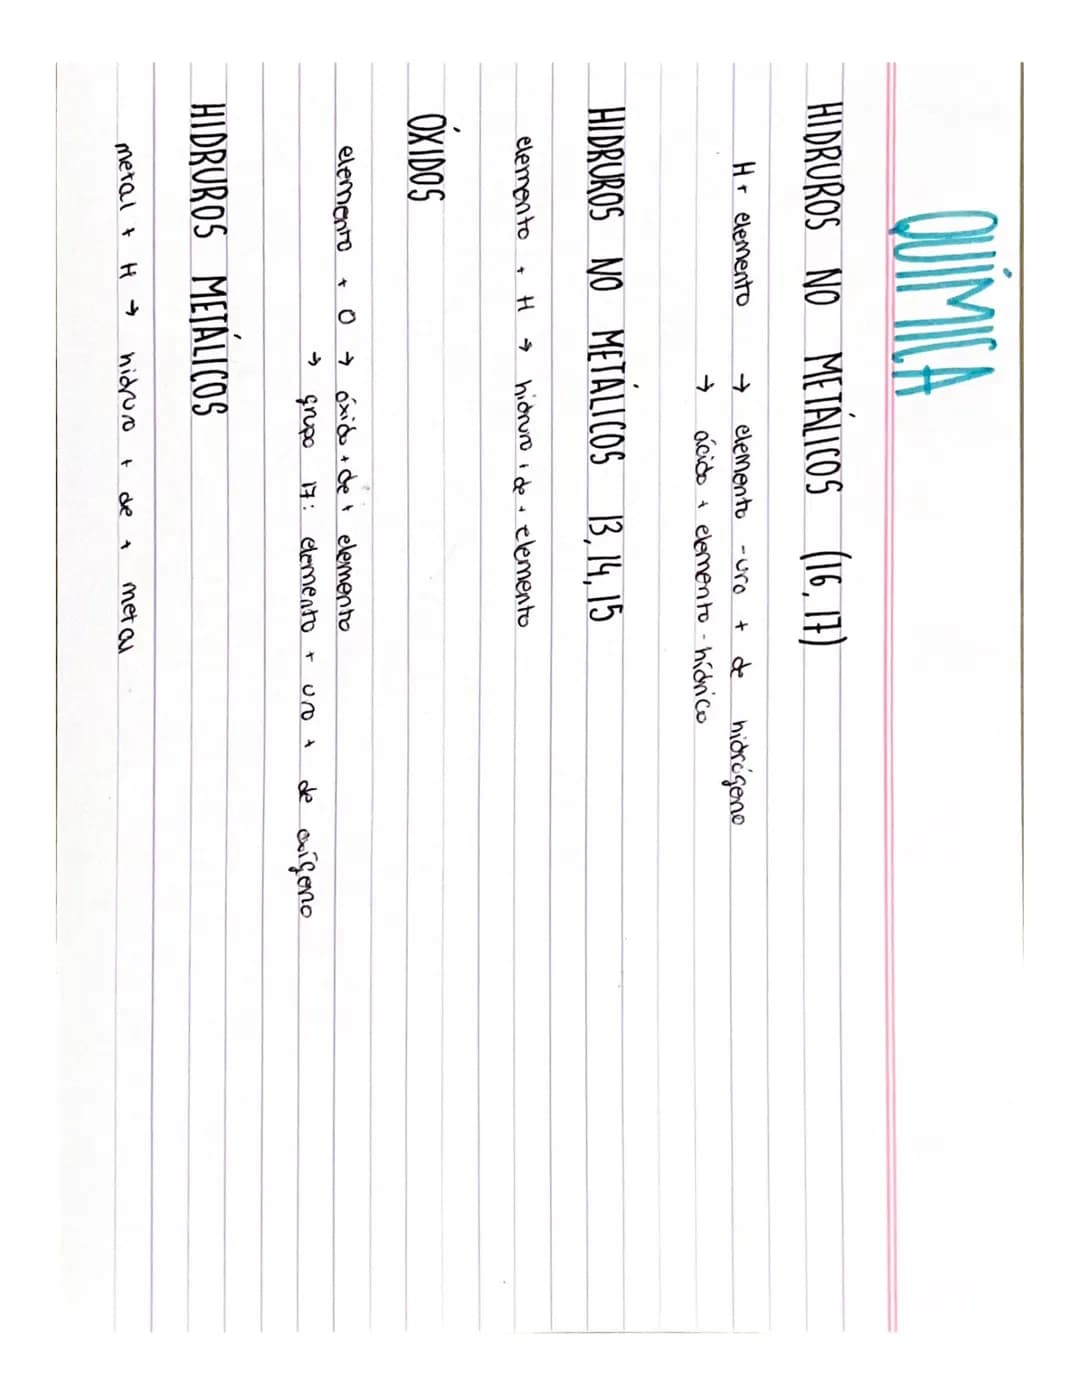 QUÍMICA
HIDRUROS NO METÁLICOS (16, 17)
H + elemento → elemento -uro + de hidrógeno
→ ácido + elemento - hídrico
HIDRUROS NO METÁLICOS 13, 14, 15
elemento + H → hidruro + de + elemento
ÓXIDOS
elemento + O → óxido + de + elemento
→ grupo 17: elemento + uro + de oxígeno
HIDRUROS METÁLICOS
metal + H → hidruro + de + metal